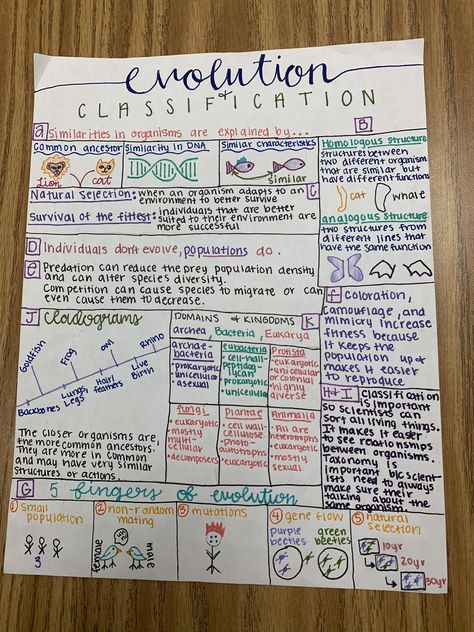 evolution
+
CLASSIFICATION
a Similarities in organisms are explained by...
Common ancestor
Lion
cat
Similarity in DNA
Similar characteristics
similar
B
Homologous structure
structures between
two different organism
that are similar but
have different functions
cat
whale
analogous structure
two structures from
different lines that
have the same function
Natural Selection: when an organism adapts to an
environment to better survive
C
Survival of the fittest: individuals that are better
suited to their environment are
more successful
D Individuals don't evolve, populations do.
e Predation can reduce the prey population density
and can alter species diversity.
Competition can cause species to migrate or can
even cause them to decrease.
f Coloration,
camouflage, and
mimicry increase
fitness because
it keeps the
population up &
makes it easier
to reproduce
J Cladograms
Goldfish
Frog
owl
Rhino
Backbones
Lungs
Legs
Hair/
feathers
Live
Birth
The closer organisms are,
the more common ancestors.
They are more in common
and may have very similar
structures or actions.
DOMAINS + KINGDOMS
K
archea, Bacteria, Eukarya
archae-
bacteria
•prokaryotic
•unicellular
•asexual
eubacteria
•cell-wall-
peptidag-
lycan
•prokaryotic
•unicellular
Protista
•eukaryotic
•unicellular
or colonial
•highly
diverse
fungi
•eukaryotic
•mostly
multi-
cellular
•decomposers
plantae
•cell wall-
cellulose
•most-
autotrophs
•eukaryotic
Animalia
•all are
heterotrophs
•eukaryotic
•mostly
sexual
H+I Classification
is important
so scientists can
sort all living things.
It makes it easier
to see relationships
between organisms.
Taxonomy is
important b/c scient
ists need to always
make sure their
talking about the
same organism.
G 5 fingers of evolution
1 small
population
3
2 non-random
mating
female
male
3 mutations
4 gene flow
purple
beetles
green
beetles
5 natural
selection
10yr
20yr
30yr